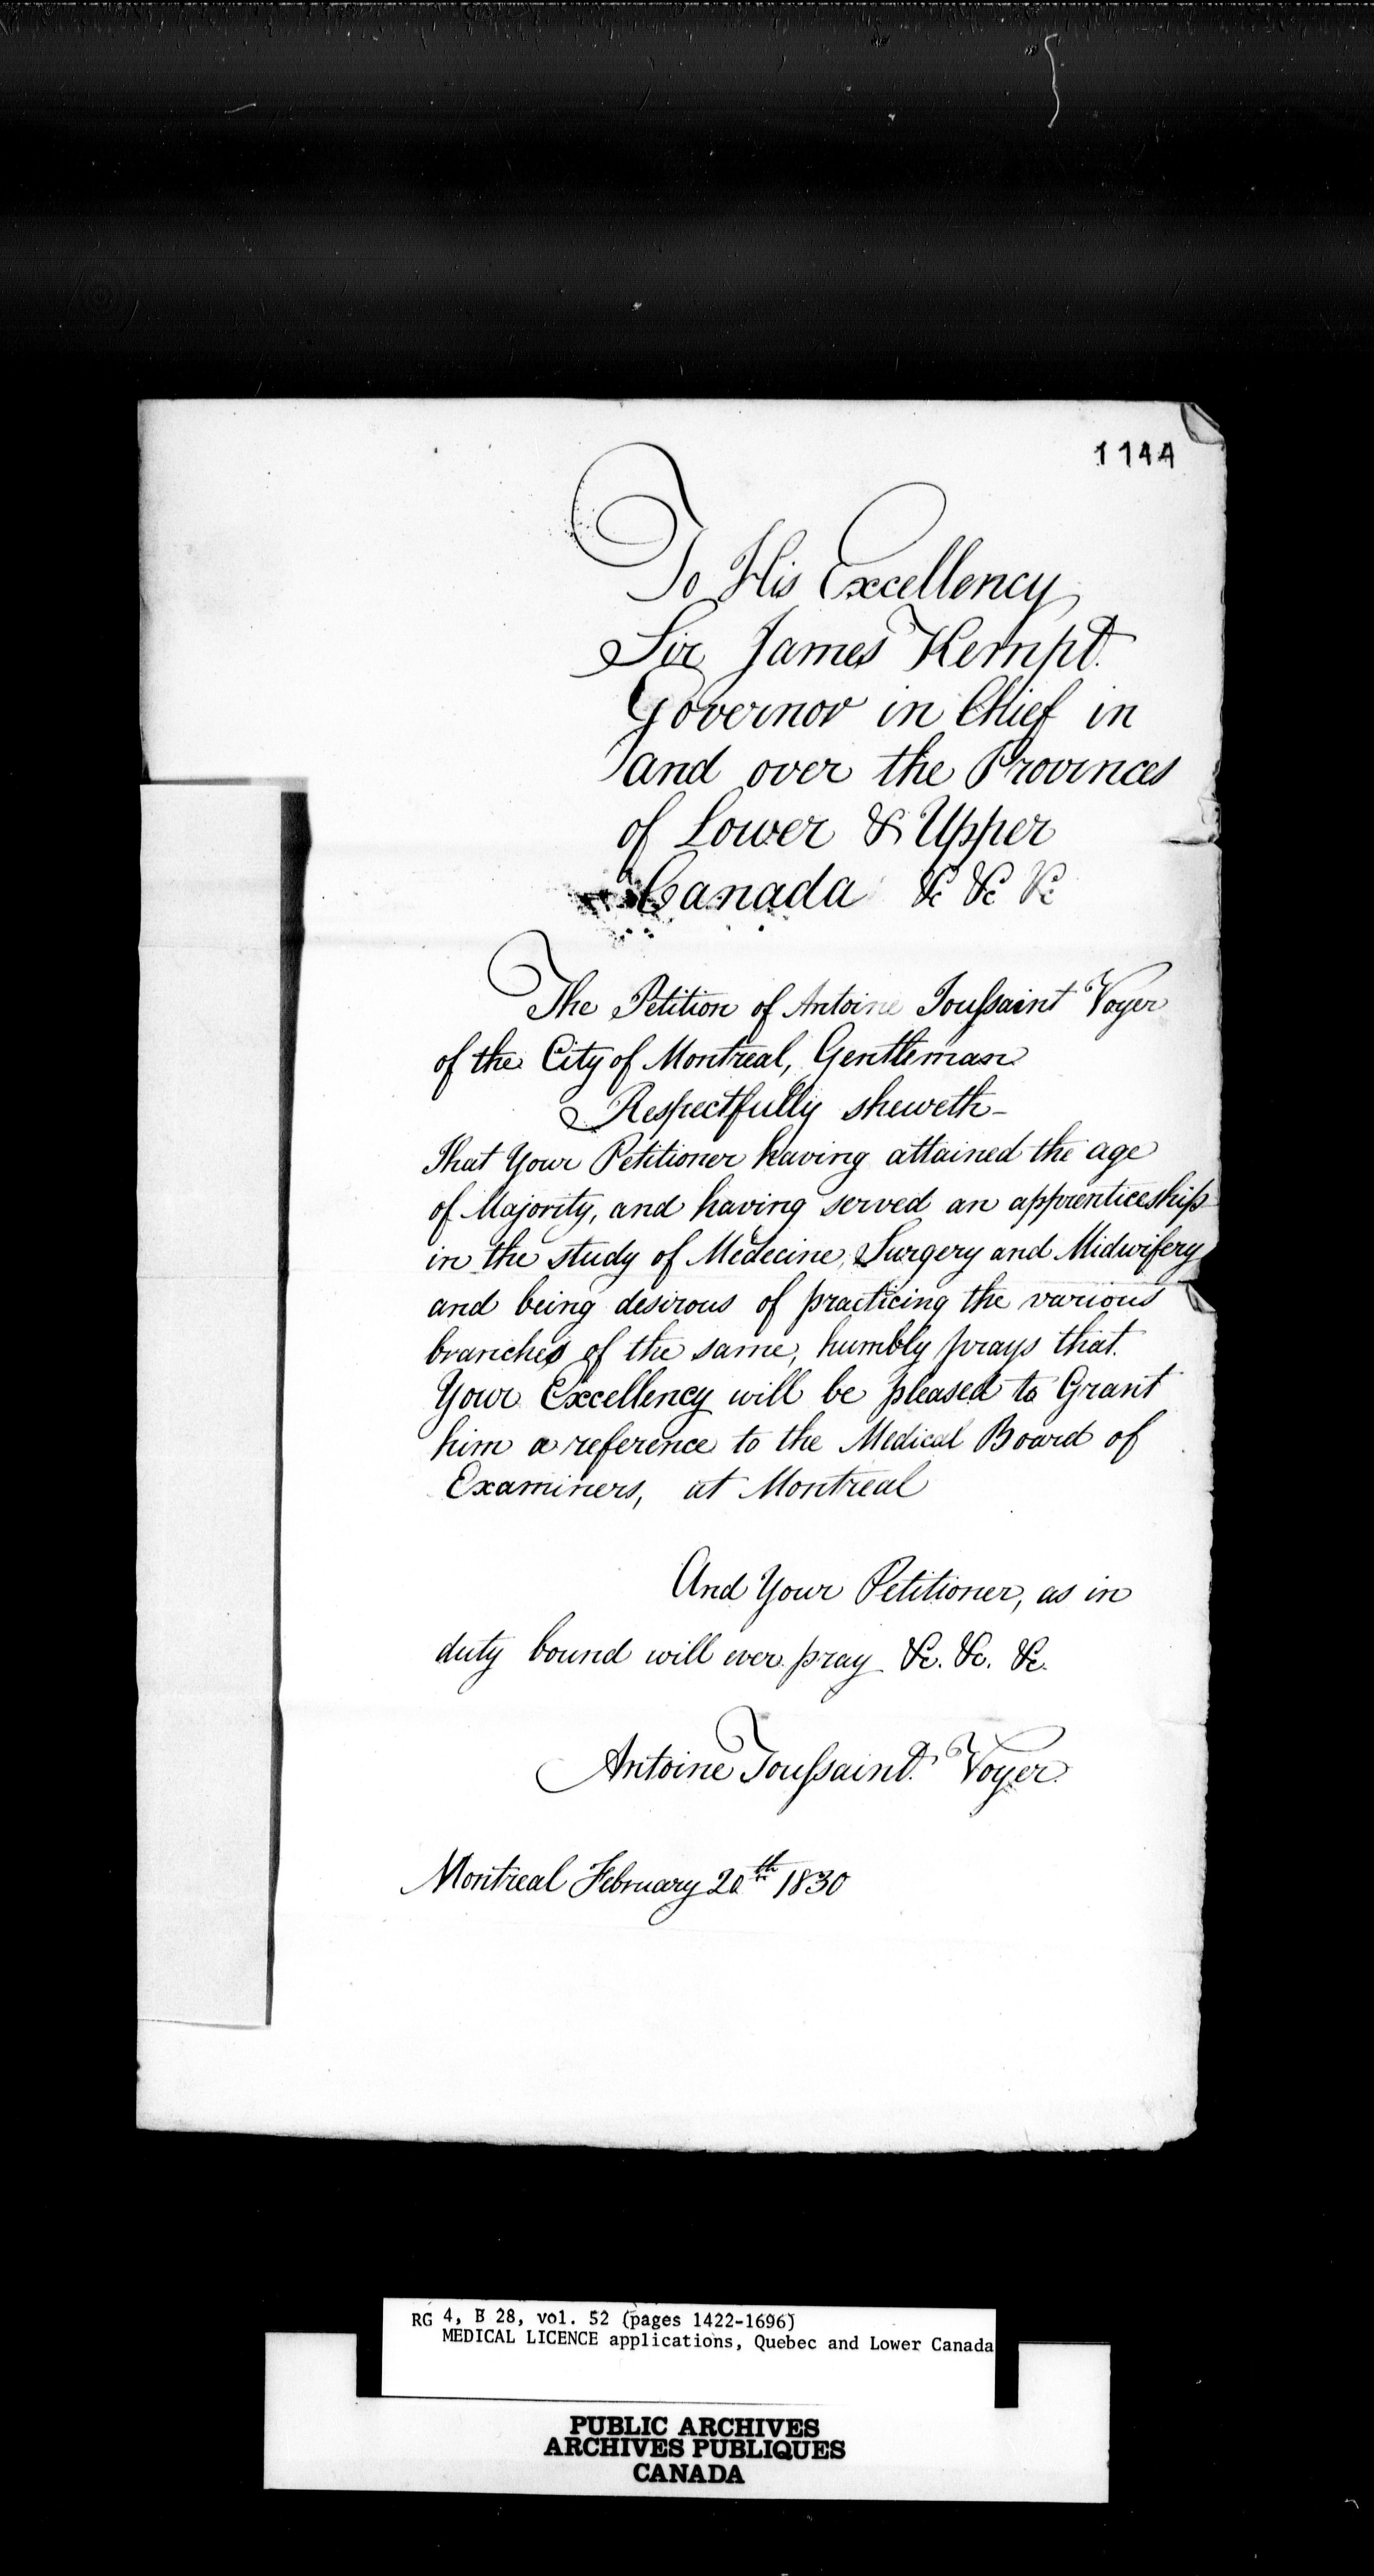 1144
To His Excellency
Sir James Kempt.
Governor in Chief in
and over the Provinces
of Lower & Upper
Canada &c &c &c
The Petition of Antoine Toussaint Voyer
of the City of Montreal, Gentleman
Respectfully sheweth-
That Your Petitioner having attained the age
of Majority, and having served an apprenticeship
in the study of Medecine, Surgery and Midwifery
and being desirous of practicing the various
branches of the same, humbly prays that
Your Excellency will be pleased to Grant
him a reference to the Medical Board of
Examiners, at Montreal
And Your Petitioner, as in
duty bound will ever pray &c. &c. &c.
Antoine Toussaint Voyer
Montreal February 20th 1830
RG 4, B 28, vol. 52 (pages 1422-1696)
MEDICAL LICENCE applications, Quebec and Lower Canada
PUBLIC ARCHIVES
ARCHIVES PUBLIQUES
CANADA